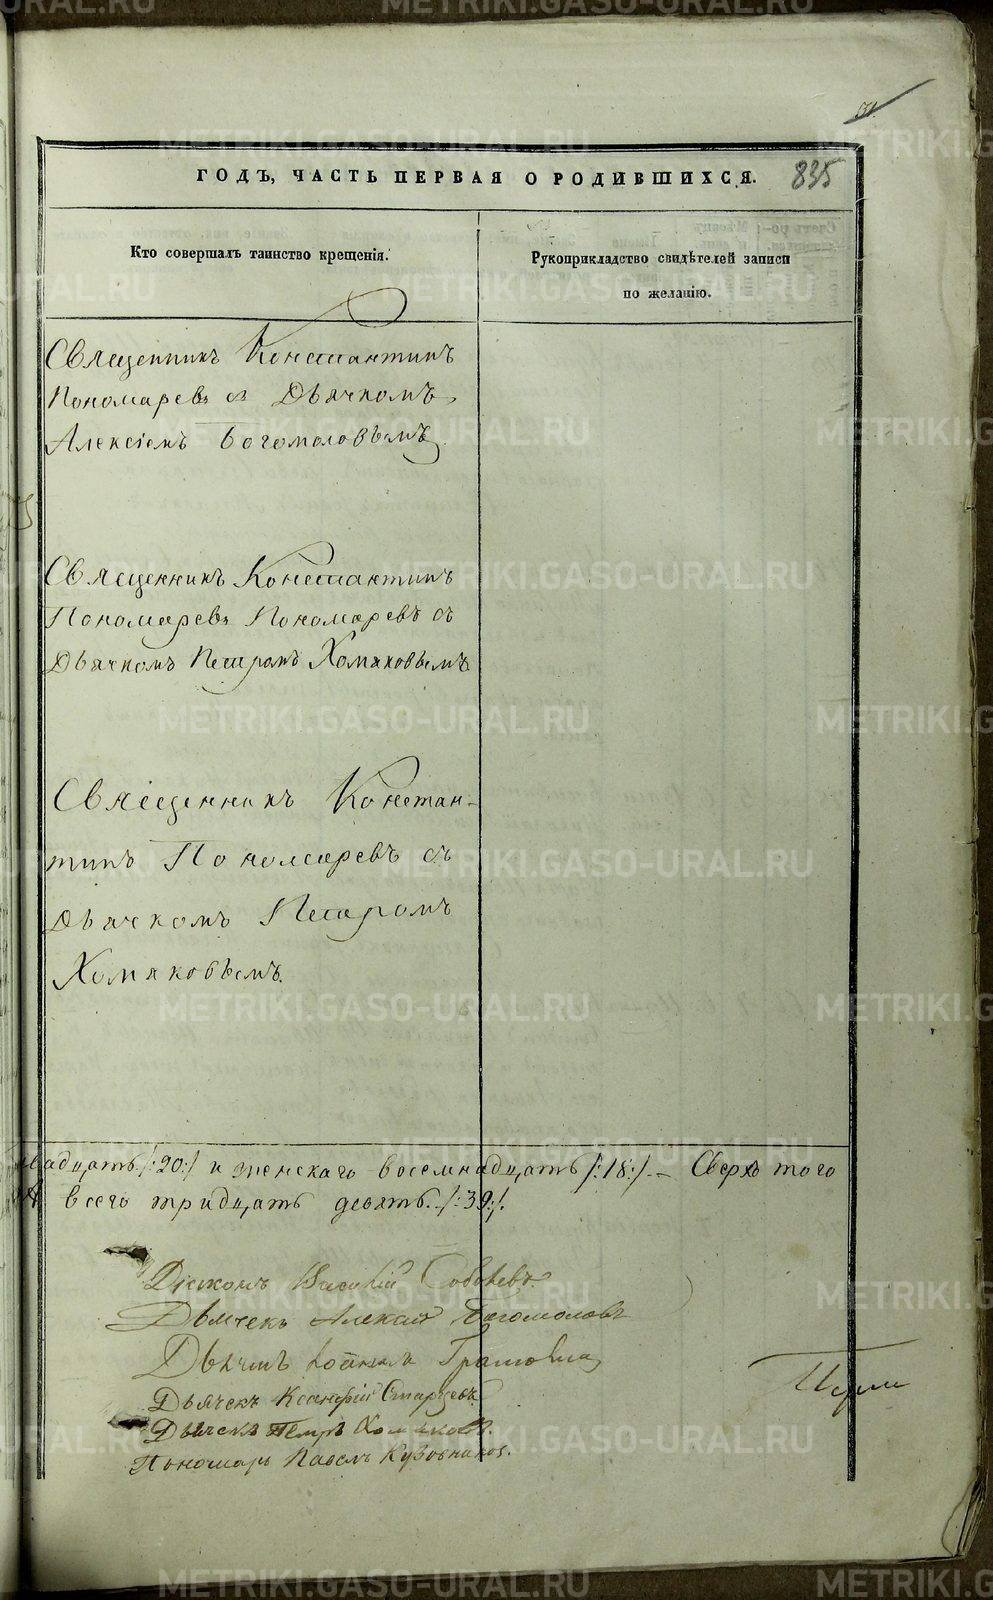 835
ГОДЪ, ЧАСТЬ ПЕРВАЯ О РОДИВШИХСЯ.
Кто совершалъ таинство крещенія.
Рукоприкладство свидѣтелей записи
по желанію.
Священникъ Константинъ
Пономаревъ съ Дьячкомъ
Алексіемъ Богомоловымъ
Священникъ Константинъ
Пономаревъ Пономаревъ съ
Дьячкомъ Петромъ Хомяковымъ
Священникъ Констан-
тинъ Пономаревъ съ
Дьячкомъ Петромъ
Хомяковымъ.
двадцать /:20:/ и женскаго восемнадцать /:18:/ – Сверхъ того
всего тридцать девять /:39:/.
Діаконъ Василій
Дьячекъ Алексѣй Богомоловъ
Дьячекъ
Дьячекъ Ксанфій Старцевъ
Дьячекъ Петръ Хомяковъ.
Пономарь Павелъ Кузовниковъ.
METRIKI.GASO-URAL.RU